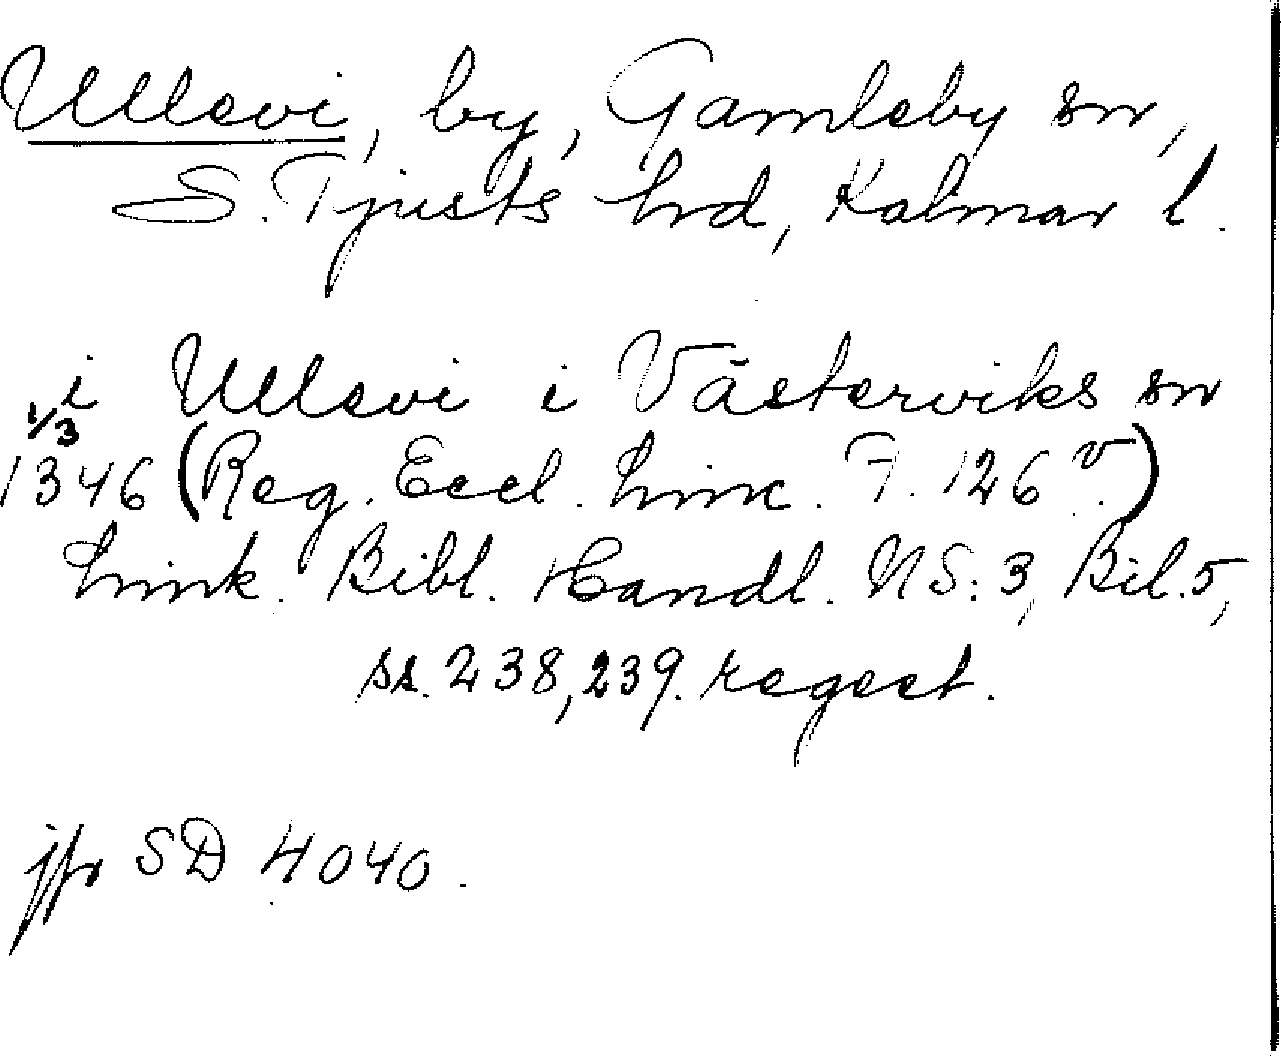 Ullevi, by, Gamleby sn,
S. Tjusts hrd, Kalmar l.
i Ullevi i Västerviks sn
1/3 1346 (Reg. Eccl. Linc. F. 126 v.)
Link. Bibl. Handl. NS: 3, Bil. 5,
ss. 238, 239. regest.
jfr SD 4040.